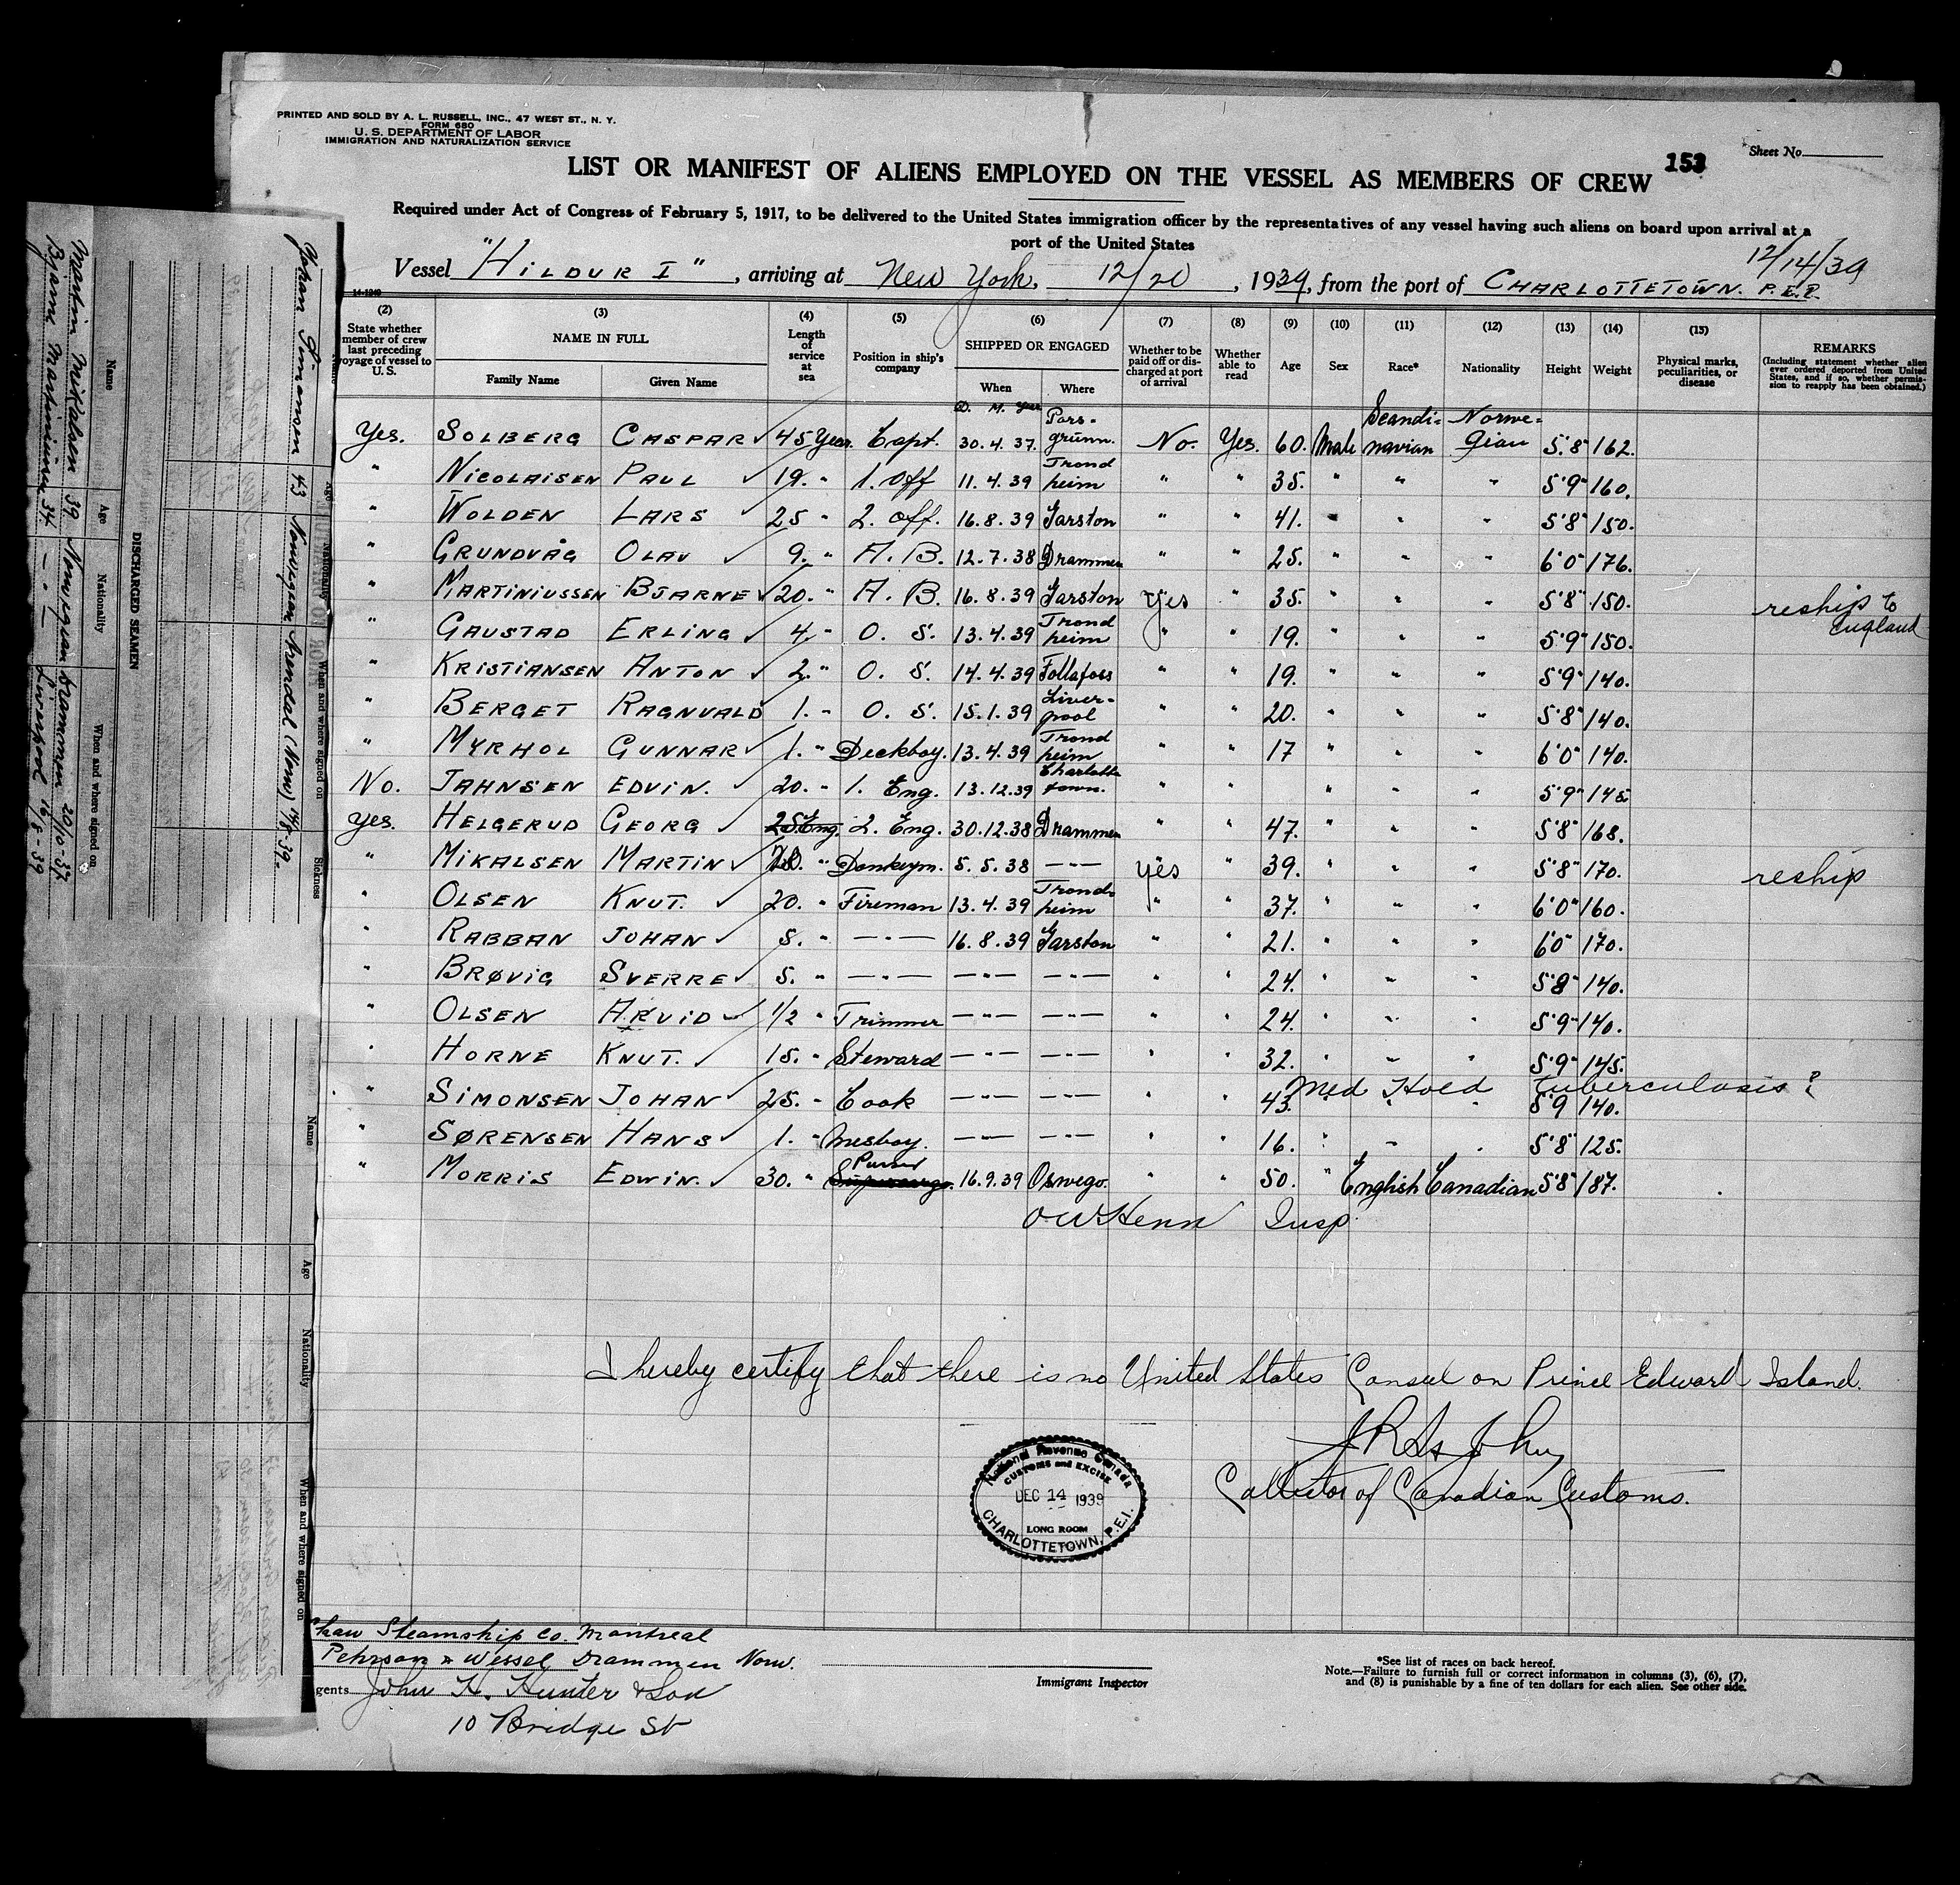 PRINTED AND SOLD BY A. L. RUSSELL, INC., 47 WEST ST., N. Y.
FORM 680
U. S. DEPARTMENT OF LABOR
IMMIGRATION AND NATURALIZATION SERVICE
Sheet No.
153
LIST OR MANIFEST OF ALIENS EMPLOYED ON THE VESSEL AS MEMBERS OF CREW
Required under Act of Congress of February 5, 1917, to be delivered to the United States immigration officer by the representatives of any vessel having such aliens on board upon arrival at a
port of the United States
12/14/39
Vessel "HILDUR I", arriving at New York, 12/20, 1939, from the port of CHARLOTTETOWN. P.E.I.
14-1240
(2) (3) (4) (5) (6) (7) (8) (9) (10) (11) (12) (13) (14) (15)
State whether member of crew last preceding voyage of vessel to U.S. NAME IN FULL Family Name Given Name Length of service at sea Position in ship's company SHIPPED OR ENGAGED When Where Whether to be paid off or discharged at port of arrival Whether able to read Age Sex Race* Nationality Height Weight Physical marks, peculiarities, or disease REMARKS (Including statement whether alien ever ordered deported from United States, and if so, whether permission to reapply has been obtained.)
D. M. Year
Yes. SOLBERG CASPAR 45 Year. Capt. 30.4.37. Porsgrunn. No. Yes. 60. Male Scandinavian Norwegian 5'8 162.
" NICOLAISEN PAUL 19. " 1. Off 11.4.39 Trondheim " " 35. " " " 5'9" 160.
" WOLDEN LARS 25 " 2. Off. 16.8.39 Garston " " 41. " " " 5'8" 150.
" GRUNDVÅG OLAV 9. " A. B. 12.7.38 Drammen " " 25. " " " 6'0" 176.
" MARTINIUSSEN BJARNE 20. " A. B. 16.8.39 Garston Yes " 35. " " " 5'8" 150. reship to England
" GAUSTAD ERLING 4. " O. S. 13.4.39 Trondheim " " 19. " " " 5'9" 150.
" KRISTIANSEN ANTON 2. " O. S. 14.4.39 Follafoss " " 19. " " " 5'9" 140.
" BERGET RAGNVALD 1. " O. S. 15.1.39 Liverpool " " 20. " " " 5'8" 140.
" MYRHOL GUNNAR 1. " Deckboy. 13.4.39 Trondheim " " 17 " " " 6'0" 140.
No. JAHNSEN EDVIN. 20. " 1. Eng. 13.12.39 Charlottetown. " " " " " 5'9" 145.
Yes. HELGERUD GEORG 25. Eng 2. Eng. 30.12.38 Drammen " " 47. " " " 5'8" 168.
" MIKALSEN MARTIN 20. " Donkeym. 5.5.38 — " — yes " 39. " " " 5'8" 170. reship
" OLSEN KNUT. 20. " Fireman 13.4.39 Trondheim " " 37. " " " 6'0" 160.
" RABBAN JOHAN 5. " — " — 16.8.39 Garston " " 21. " " " 6'0" 170.
" BRØVIG SVERRE 5. " — " — — " — — " — " " 24. " " " 5'8" 140.
" OLSEN ARVID 1/2 " Trimmer — " — — " — " " 24. " " " 5'9" 140.
" HORNE KNUT. 15. " Steward — " — — " — " " 32. " " " 5'9" 145.
" SIMONSEN JOHAN 25. " Cook — " — — " — 43. Med Hold tuberculosis? 5'9 140.
" SØRENSEN HANS 1. " Mesboy. — " — — " — " " 16. " " " 5'8" 125.
" MORRIS EDWIN. 30. " Purser 16.9.39 Oswego. " " 50. " English Canadian 5'8" 187.
Insp.
I hereby certify that there is no United States Consul on Prince Edward Island.
Collector of Canadian Customs.
National Revenue Canada
CUSTOMS and EXCISE
DEC 14 1939
LONG ROOM
CHARLOTTETOWN, P.E.I.
Steamship Co. Montreal
Pehrson & Wessel Drammen Norw.
gents John H. Hunter & Son
10 Bridge St
Immigrant Inspector
*See list of races on back hereof.
Note.—Failure to furnish full or correct information in columns (3), (6), (7),
and (8) is punishable by a fine of ten dollars for each alien. See other side.
Johan Simonsen 43 Norwegian Arendal (Norw) 14/8-39.
Name Age Nationality When and where signed on Sickness
DISCHARGED SEAMEN
Name Age Nationality When and where signed on
Martin Mikalsen 39 Norwegian Drammen 20/10-37
Bjarne Martiniussen 34. — " — Liverpool 16/8-39
Name Age Nationality When and where signed on